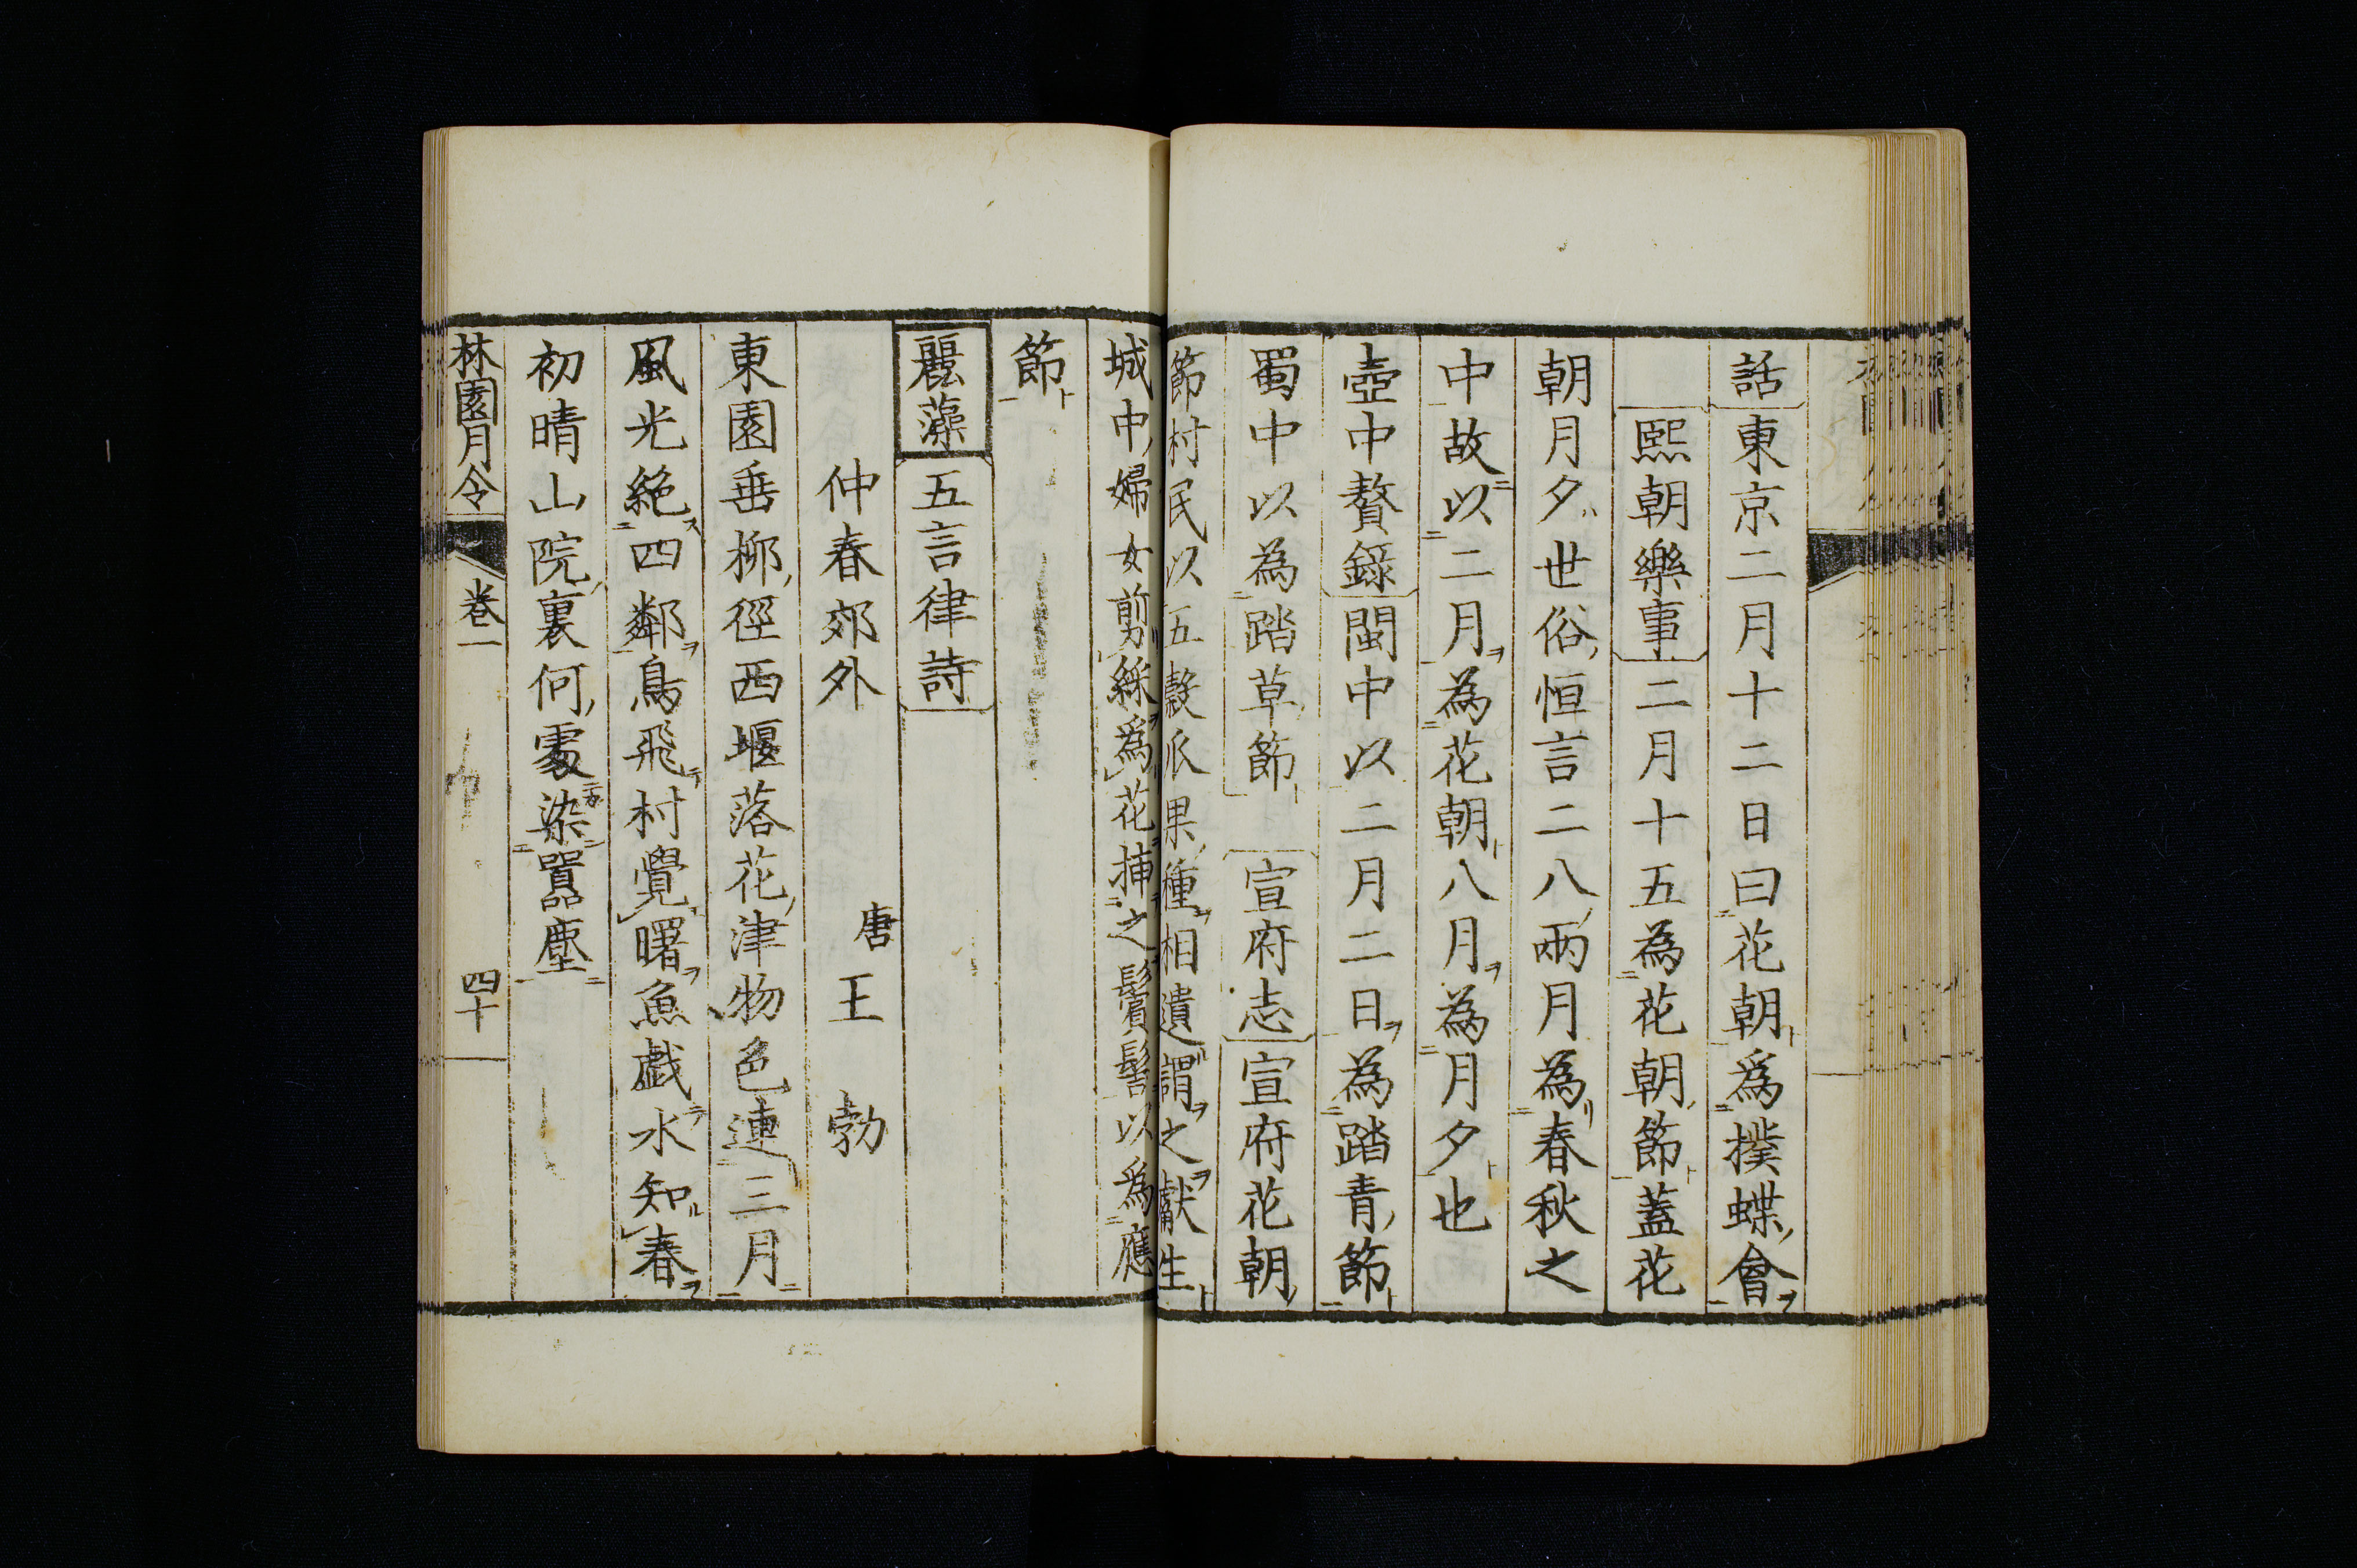 話東京二月十二日曰花朝爲撲蝶會
熙朝樂事二月十五為花朝節蓋花
朝月夕世俗恒言二八兩月為春秋之
中故以二月為花朝八月為月夕也
壺中贅錄閩中以二月二日為踏青節
蜀中以為踏草節 宣府志宣府花朝
節村民以五穀瓜果種相遺謂之獻生
城中婦女剪綵爲花揷之鬢髻以爲應
節
麗藻五言律詩
仲春郊外 唐 王 勃
東園垂柳徑西堰落花津物色連三月
風光絶四鄰鳥飛村覺曙魚戯水知春
初晴山院裏何處染囂塵
林園月令 卷一 四十